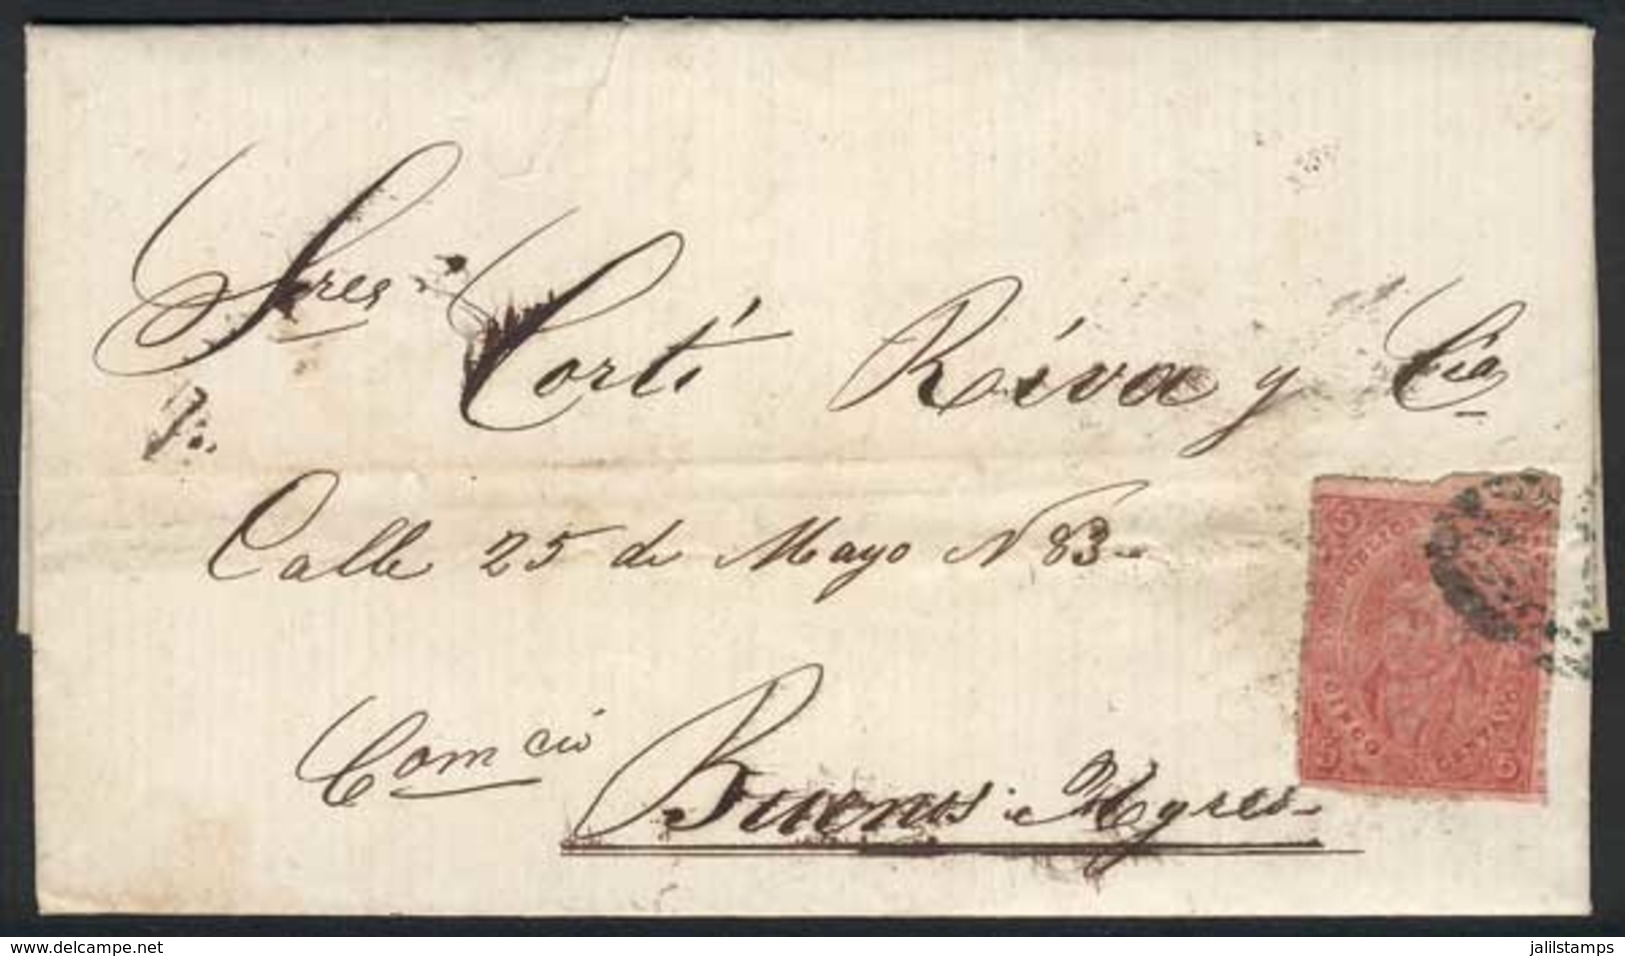 Sres. Cortí Riva y Cia
Calle 25 de Mayo N 83
Comcio
Buenos Ayres
5 5
CINCO CENTAVOS
5 5
www.delcampe.net
jalilstamps